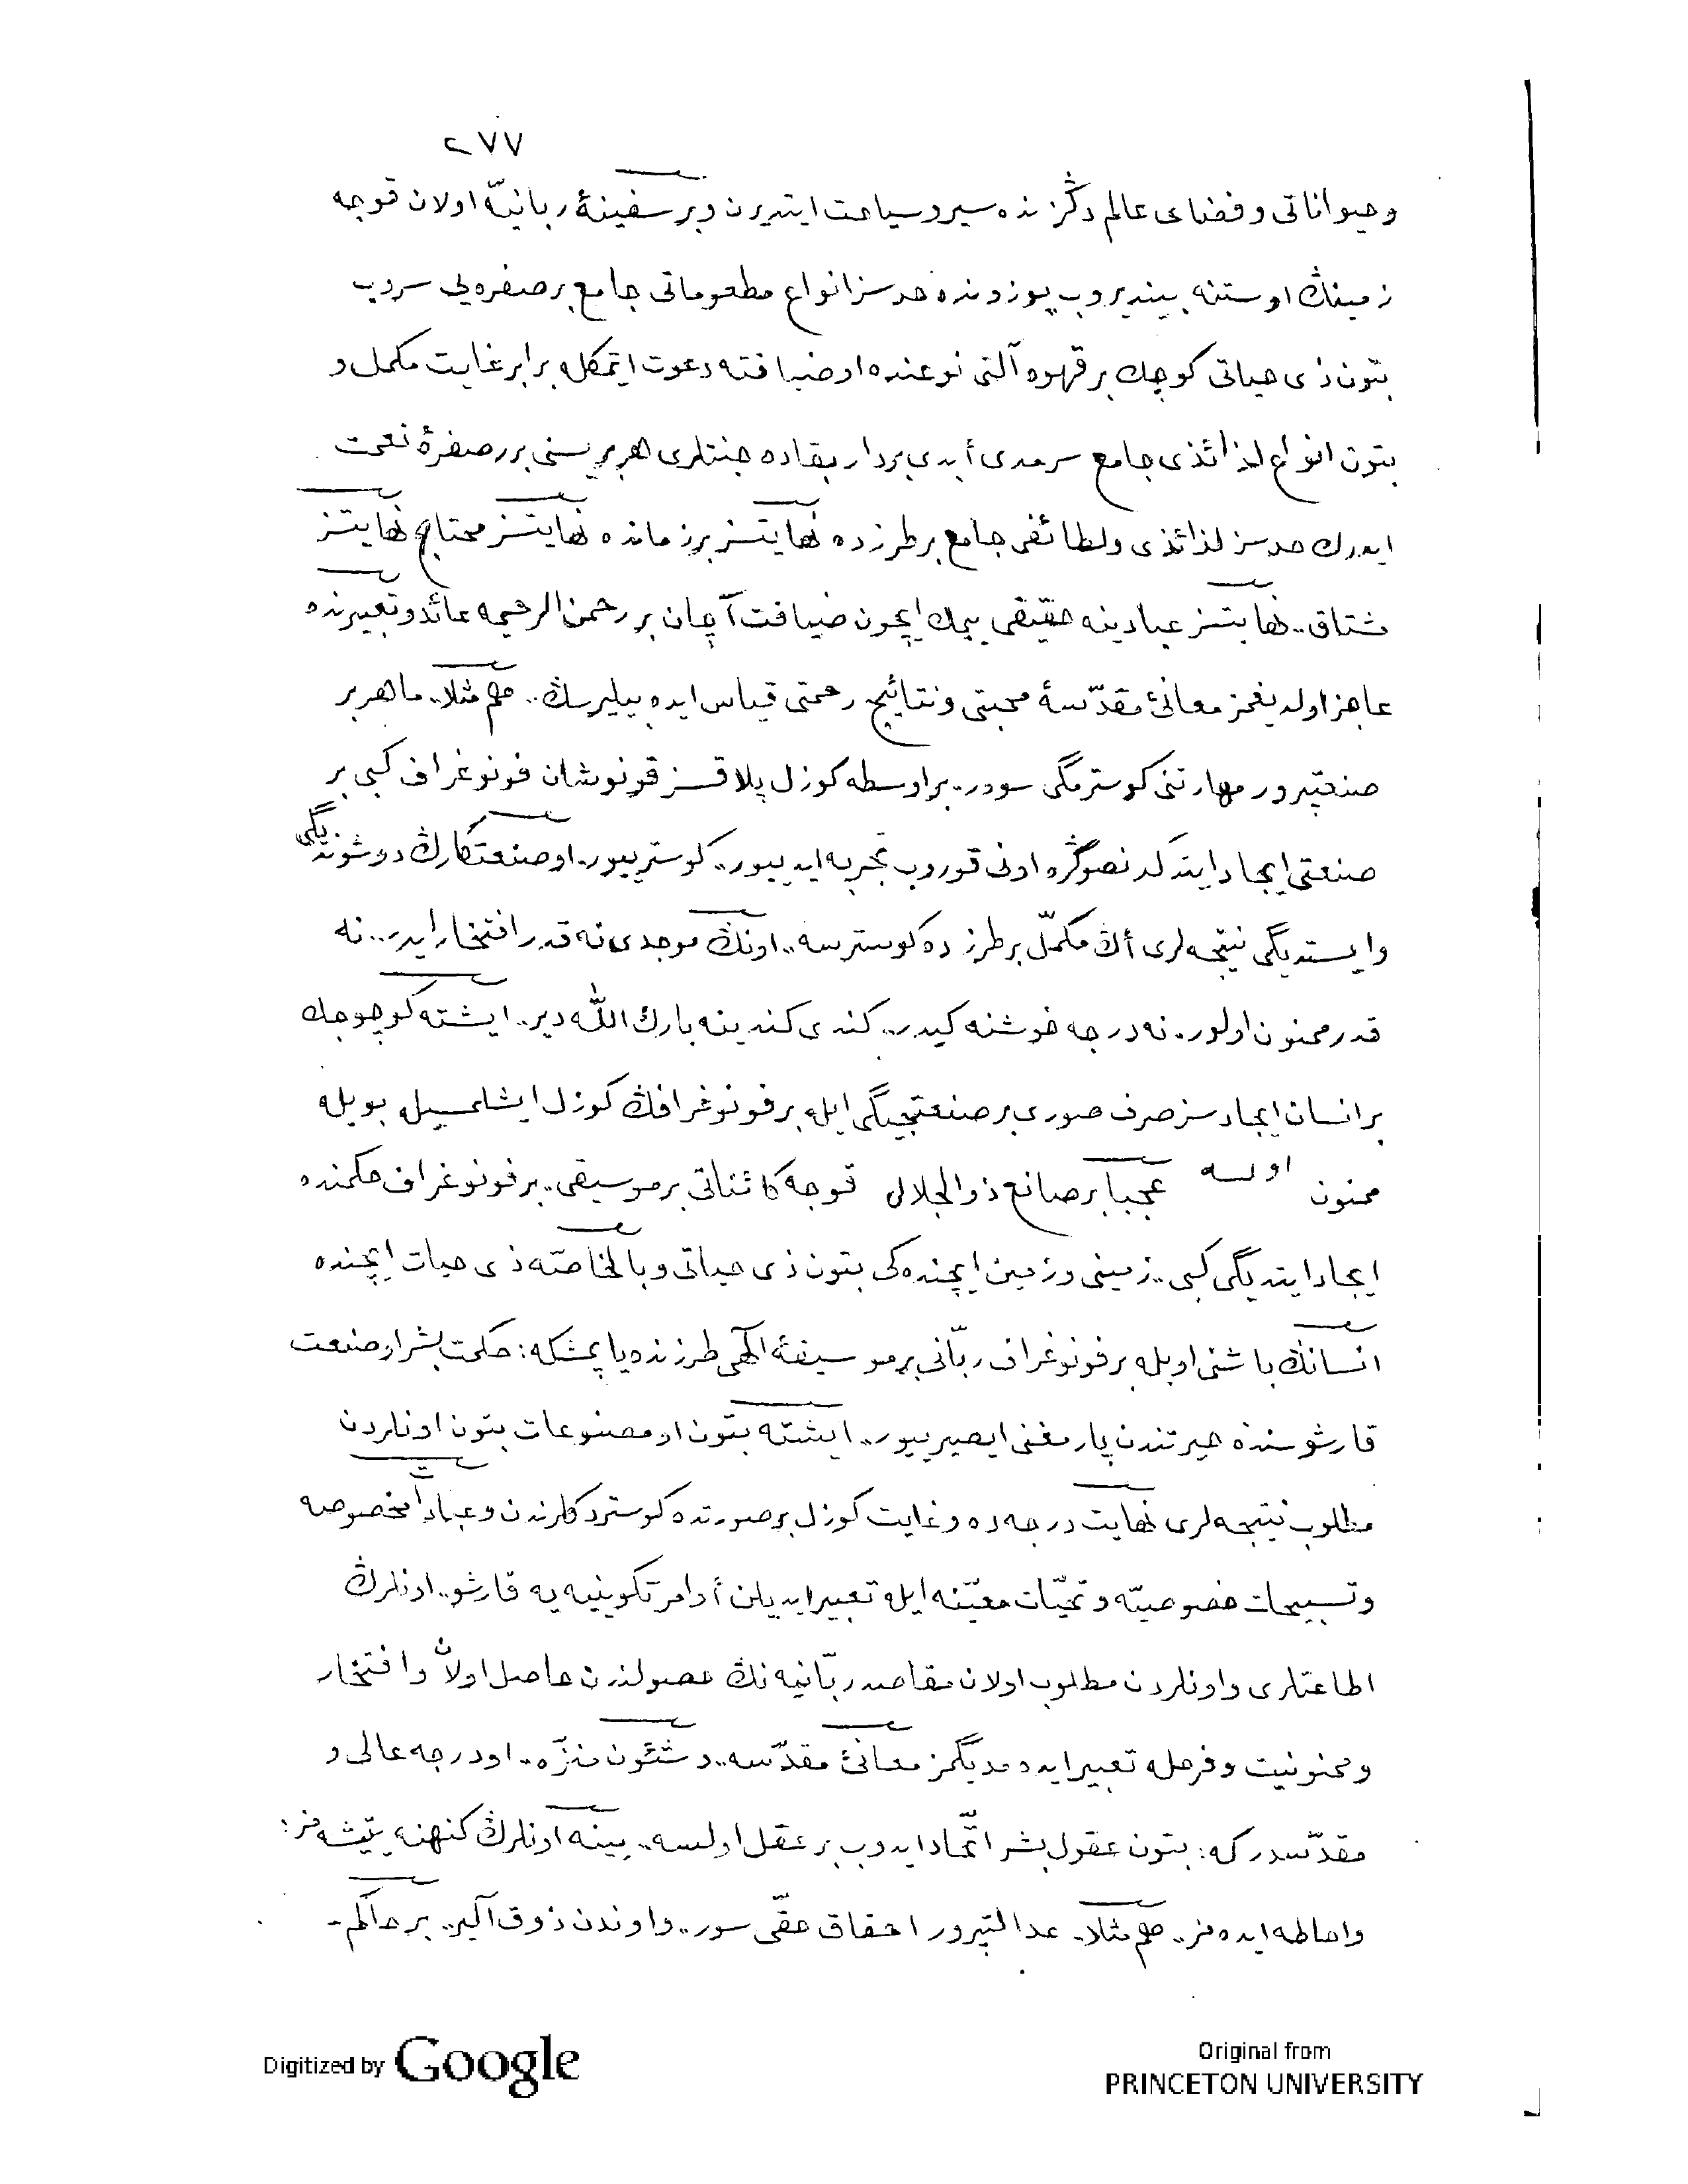 ٢٧٧
وحیواناتی وفضای عالم دڭزنده سیر و سیاحت ایتدیرن وبر سفینۀ ربانیّه اولان قوجه
زمینڭ اوستنه بیندیروب یوزونده حدسز انواع مطعوماتی جامع بر صفره‌یی سروب
بتون ذی حیاتی کوچك بر قهوه آلتی نوعنده او ضیافته دعوت ایتمکله برابر غایت مکمل و
بتون انواع لذائذی جامع سرمدی أبدی بر دار بقاده جنتلری هر بریسنی برر صفرۀ نعمت
ایدرك حدسز لذائذی ولطائفی جامع بر طرزده نهایتسز بر زمانده نهایتسز محتاج نهایتسز
مشتاق.. نهایتسز عبادینه حقیقی ییمك ایچون ضیافت آچان بر رحمن الرحیمه عائد و تعبیرنده
عاجز اولدیغمز معانئ مقدّسۀ محبتی و نتائیج رحمتی قیاس ایده بیلیرسڭ.. هم مثلا.. ماهر بر
صنعتپرور مهارتنی کوسترمگی سودر.. بر اوسطه کوزل پلاقسز قونوشان فونوغراف کبی بر
صنعتی ایجاد ایتدکدنصوڭره اونی قوروب تجربه ایدییور.. کوستریيور.. او صنعتکارڭ دوشوندیگی
وایستدیگی نتیجه‌لری أڭ مکمّل بر طرزده کوسترسه.. اونڭ موجدی نه قدر افتخار ایدر.. نه
قدر ممنون اولور.. نه درجه خوشنه کیدر.. کندی کندینه بارك اللّٰه دیر.. ایشته کوچوجك
بر انسان ایجادسز صرف صوری بر صنعتجیگی ایله بر فونوغرافڭ کوزل ایشلمسیله بویله
ممنون اولسه عجبا بر صانع ذوالجلال قوجه کائناتی بر موسیقی.. بر فونوغراف حکمنده
ایجاد ایتدیگی کبی.. زمینی وزمین ایچنده‌کی بتون ذی حیاتی وبالخاصّه ذی حیات ایچنده
انسانڭ باشنی اویله بر فونوغراف ربّانی بر موسیقۀ الٓهی طرزنده یاپمشکه: حکمت بشر او صنعت
قارشوسنده حیرتندن پارمغنی ایصیرییور.. ایشته بتون او مصنوعات بتون اونلردن
مطلوب نتیجه‌لری نهایت درجه‌ده وغایت کوزل بر صورتده کوستردکلرندن وعبادات مخصوصه
وتسبیحات خصوصیّه وتحیّات معیّنه ایله تعبیر ایدیلن أوامر تکوینیه‌یه قارشو.. اونلرڭ
اطاعتلری واونلردن مطلوب اولان مقاصد ربّانیه‌نڭ حصولندن حاصل اولان وافتخار
وممنونیت وفرحله تعبیر ایده‌مدیگمز معانئ مقدّسه.. و شئون منزّه.. او درجه عالی و
مقدّسدرکه: بتون عقول بشر اتّحاد ایدوب بر عقل اولسه.. یینه اونلرڭ کنهنه یتیشه‌مز:
واحاطه ایده‌مز.. هم مثلا.. عدالتپرور احقاق حقّی سور.. واوندن ذوق آلیر.. بر حاکم-
Digitized by Google
Original from
PRINCETON UNIVERSITY